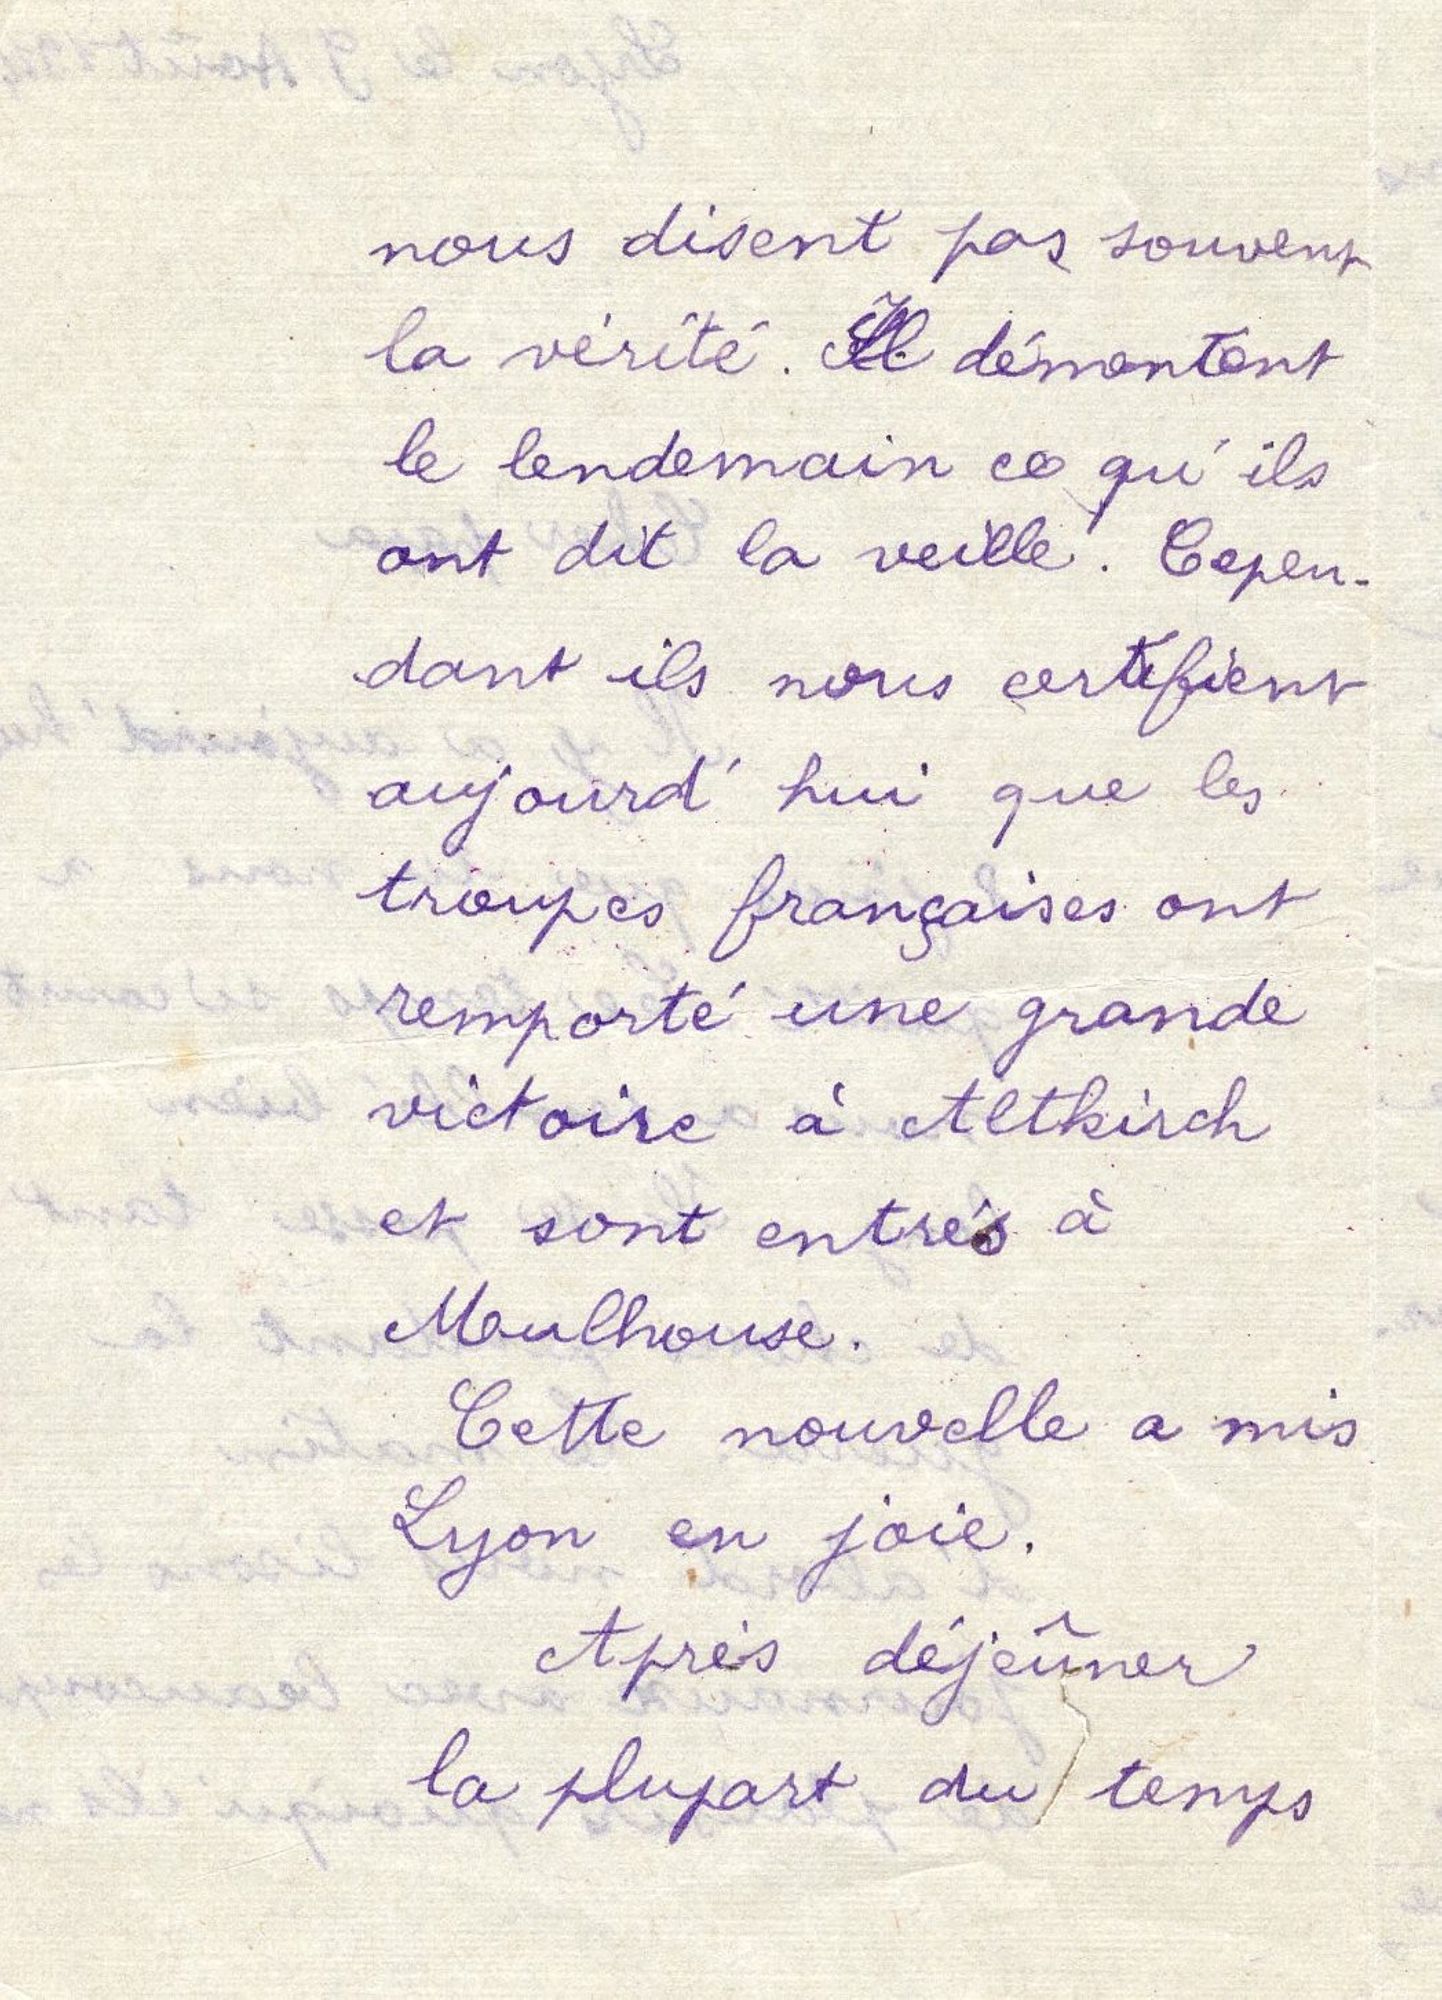 nous disent pas souvent
la vérité. Il démentent
le lendemain ce qu'ils
ont dit la veille. Cepen-
dant ils nous certifient
aujourd'hui que les
troupes françaises ont
remporté une grande
victoire à Altkirch
et sont entrés à
Mulhouse.
Cette nouvelle a mis
Lyon en joie.
Après déjeûner
la plupart du temps